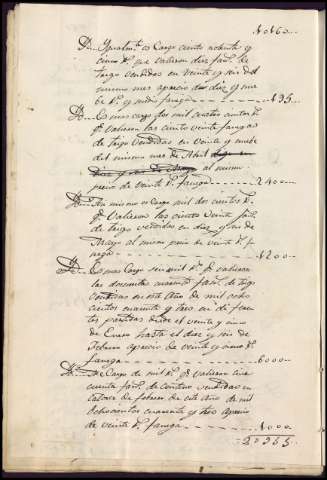 Igualmte es Cargo ciento noventa y
cinco Rs que valieron diez fans de
trigo vendidas en veinte y seis del
mismo mes a precio de diez y nue
be Rs y medio fanega 195
Es mas cargo dos mil cuatro cientos Rs
qe valieron las ciento veinte fanegas
de trigo vendidas en veinte y nuebe
del mismo mes de Abril
al mismo
precio de veinte Rs fanega 2400
An mismo es Cargo mil dos cientos Rs
qe valieron las veinte fans
de trigo vendidas en diez y seis de
Mayo al mismo precio de veinte Rs f
nega 1200
Es mas Cargo seis mil Rs qe valieron
las doscientas cuarenta fans de trigo
vendidas en este Año de mil ocho
cientos cuarenta y tres en dife
rentes partidas desde el veinte y cinco
de Enero hasta el diez y seis de
Febrero a precio de veinte y cinco Rs
fanega 6000
Es Cargo de mil Rs qe valieron cin
cuenta fans de centeno vendidas en
catorce de febrero de este año de mil
ochocientos cuarenta y tres a precio
de veinte Rs fanega 1000
20955